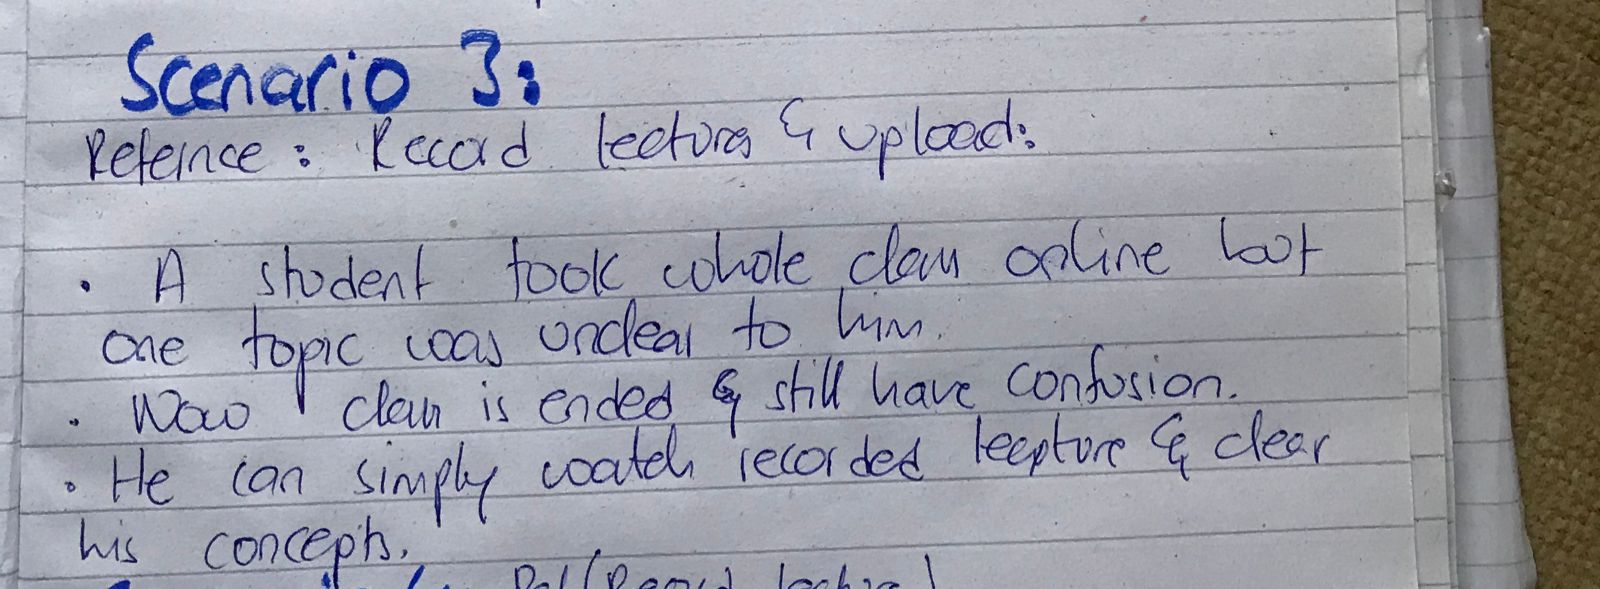 Scenario 3:
Refernce: Record lectures & upload:
. A student took whole class online but
one topic was unclear to him.
. Now class is ended & still have confusion.
. He can simply watch recorded leepture & clear
his concepts.
Ref (Record lecture)